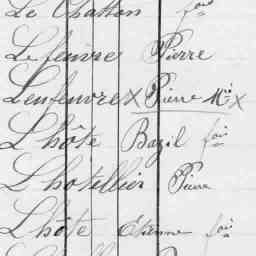 Le Chatton
Lefeuvre Pierre
Lenfeuvre X Pierre Mré X
L'hôte Bazil foui
L'hotellier Pierre
L'hôte Etienne foui